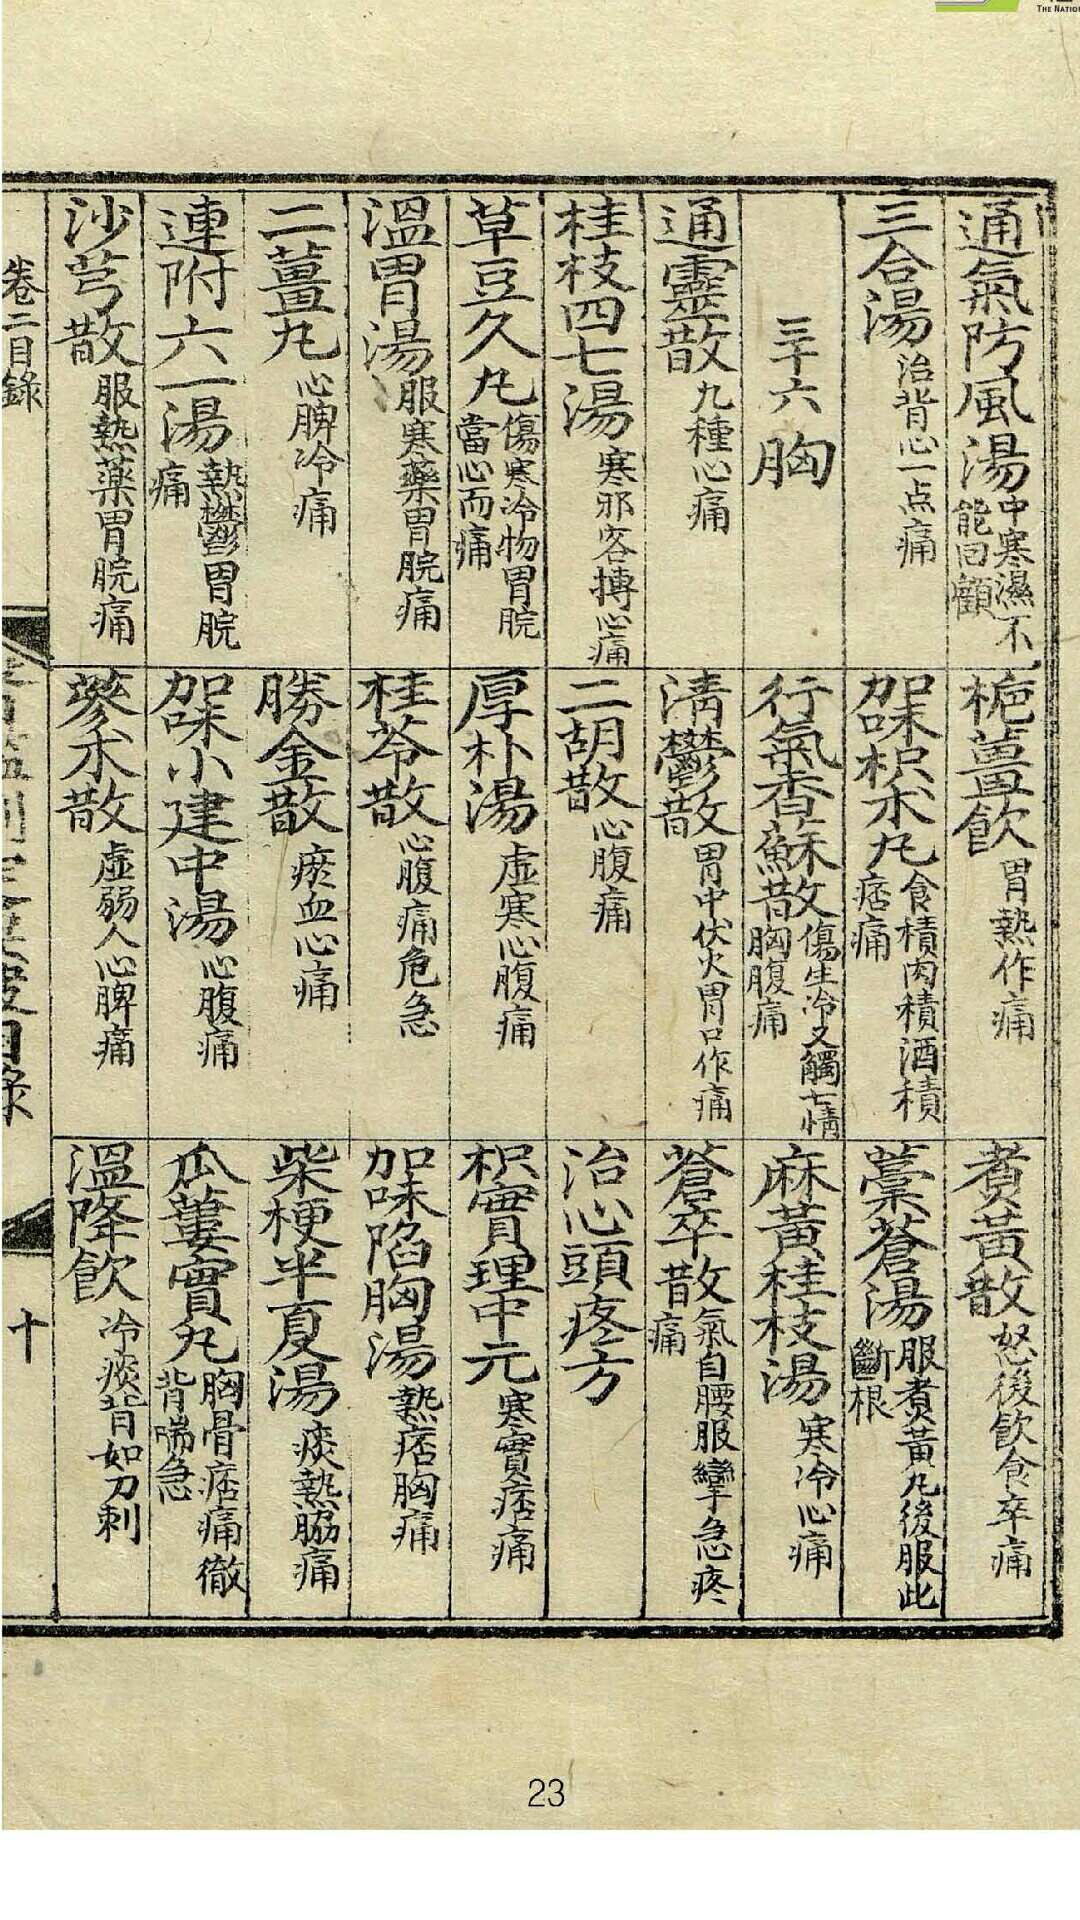 通氣防風湯 中寒濕不能回顧
三合湯 治背心一点痛
三十六 胸
通靈散 九種心痛
桂枝四七湯 寒邪客搏心痛
草豆久丸 傷寒冷物胃脘當心而痛
溫胃湯 服寒藥胃脘痛
二薑丸 心脾冷痛
連附六一湯 熱鬱胃脘痛
沙芎散 服熱藥胃脘痛
梔薑飮 胃熱作痛
加味枳朮丸 食積肉積酒積痞痛
行氣香蘇散 傷生冷又觸七情胸腹痛
淸鬱散 胃中伏火胃口作痛
二胡散 心腹痛
厚朴湯 虛寒心腹痛
桂苓散 心腹痛危急
勝金散 瘀血心痛
加味小建中湯 心腹痛
蔘朮散 虛弱人心脾痛
煮黃散 怒後飮食卒痛
藁蒼湯 服煮黃丸後服此斷根
麻黃桂枝湯 寒冷心痛
蒼卒散 氣自腰服攣急疼痛
治心頭疼方
枳實理中元 寒實痞痛
加味陷胸湯 熱痞胸痛
柴梗半夏湯 痰熱脇痛
瓜蔞實丸 胸骨痞痛徹背喘急
溫降飮 冷痰背如刀刺
卷二目錄
目錄
十
23